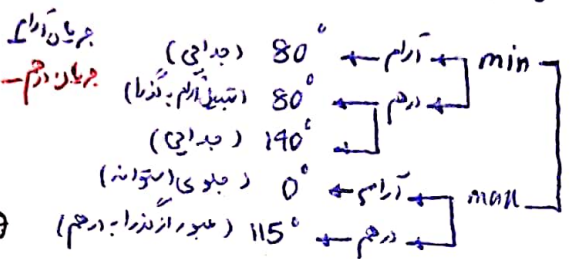 جریان آرام
جریان درهم
min ← آرام ← 80° (جدایی)
درهم ← 80° (تبدیل آرام به گذرا)
140° (جدایی)
max ← آرام ← 0° (جلوی استوانه)
درهم ← 115° (عبور از گذرا به درهم)